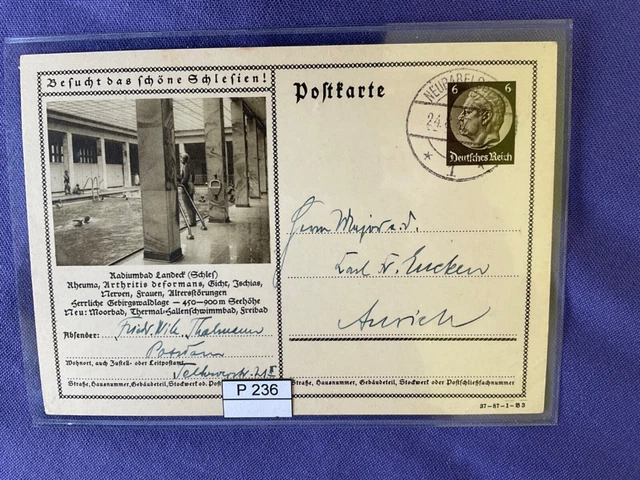 Besucht das schöne Schlesien!
Postkarte
NEUBABELSBERG
24.
1
6 6
Deutsches Reich
Radiumbad Landeck (Schles)
Rheuma, Arthritis deformans, Gicht, Ischias,
Nerven, Frauen, Altersstörungen
Herrliche Gebirgswaldlage – 450–900 m Seehöhe
Neu: Moorbad, Thermal-Hallenschwimmbad, Freibad
Absender: Friedr. Wilh. Thalmann
Potsdam
Wohnort, auch Zustell- oder Leitpostamt
21 II
Straße, Hausnummer, Gebäudeteil, Stockwerk od. Post
P 236
Herrn Major a. d.
Karl v. Eucken
Aurich
Straße, Hausnummer, Gebäudeteil, Stockwerk oder Postschließfachnummer
37-87-1-B3